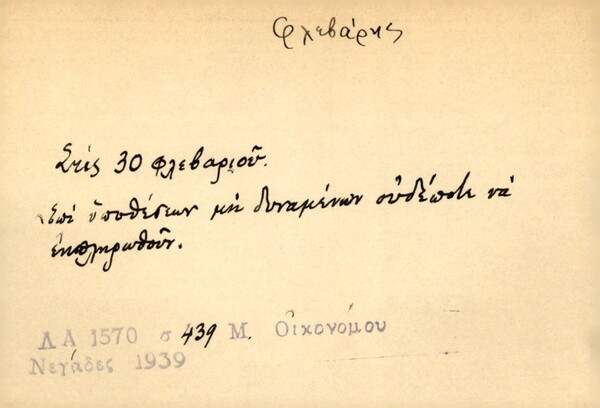 Φλεβάρης
Στὶς 30 Φλεβαριοῦ.
Ἐπὶ ὑποθέσεων μὴ δυναμένων οὐδέποτε νὰ
ἐκπληρωθοῦν.
ΛΑ 1570 σ 439 Μ. Οἰκονόμου
Νεγάδες 1939